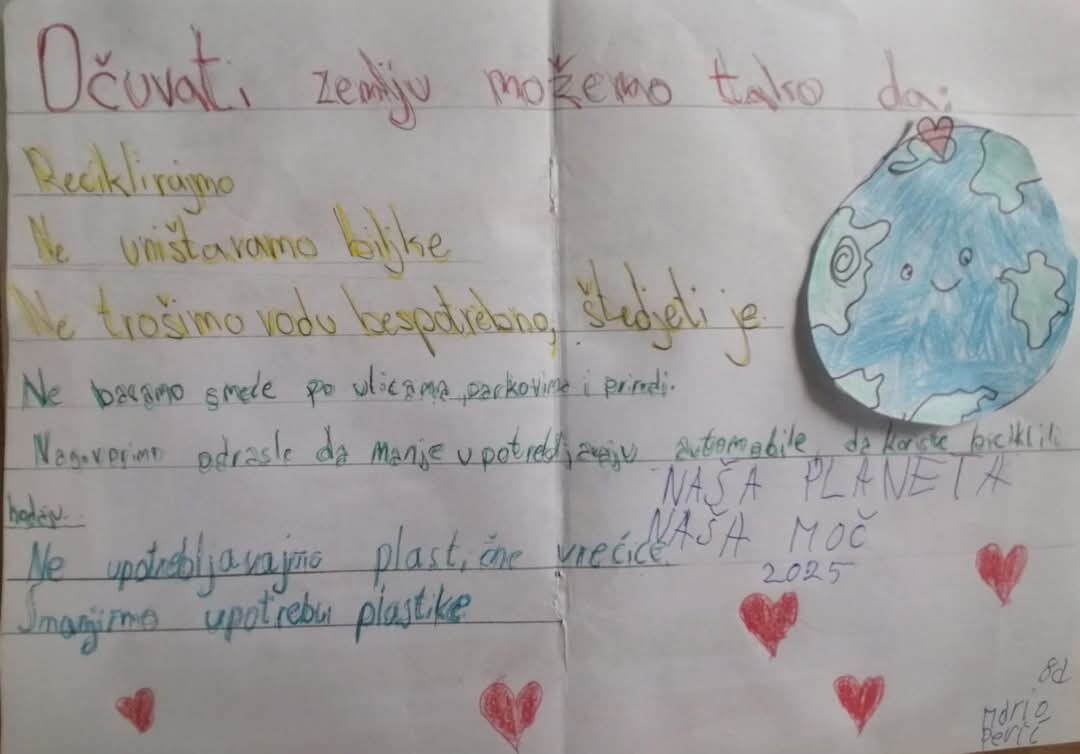 Očuvati zemlju možemo tako da:
Reciklirajmo
Ne uništaramo biljke
Ne trošimo vodu bespotrebno, štedjeti je
Ne bacamo smeće po ulicama, parkovima i prirodi.
Nagovorimo odrasle da manje upotrebljavaju automobile, da koriste bicikl ili
hodaju.
Ne upotrebljavajmo plastične vrećice.
Smanjimo upotrebu plastike
NAŠA PLANETA
NAŠA MOČ
2025
8d
Mario
Perić